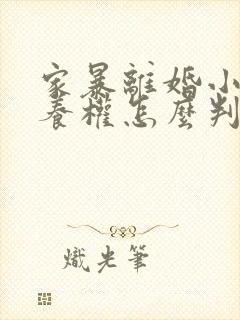 家暴離婚小
養權怎麼判
熾光筆